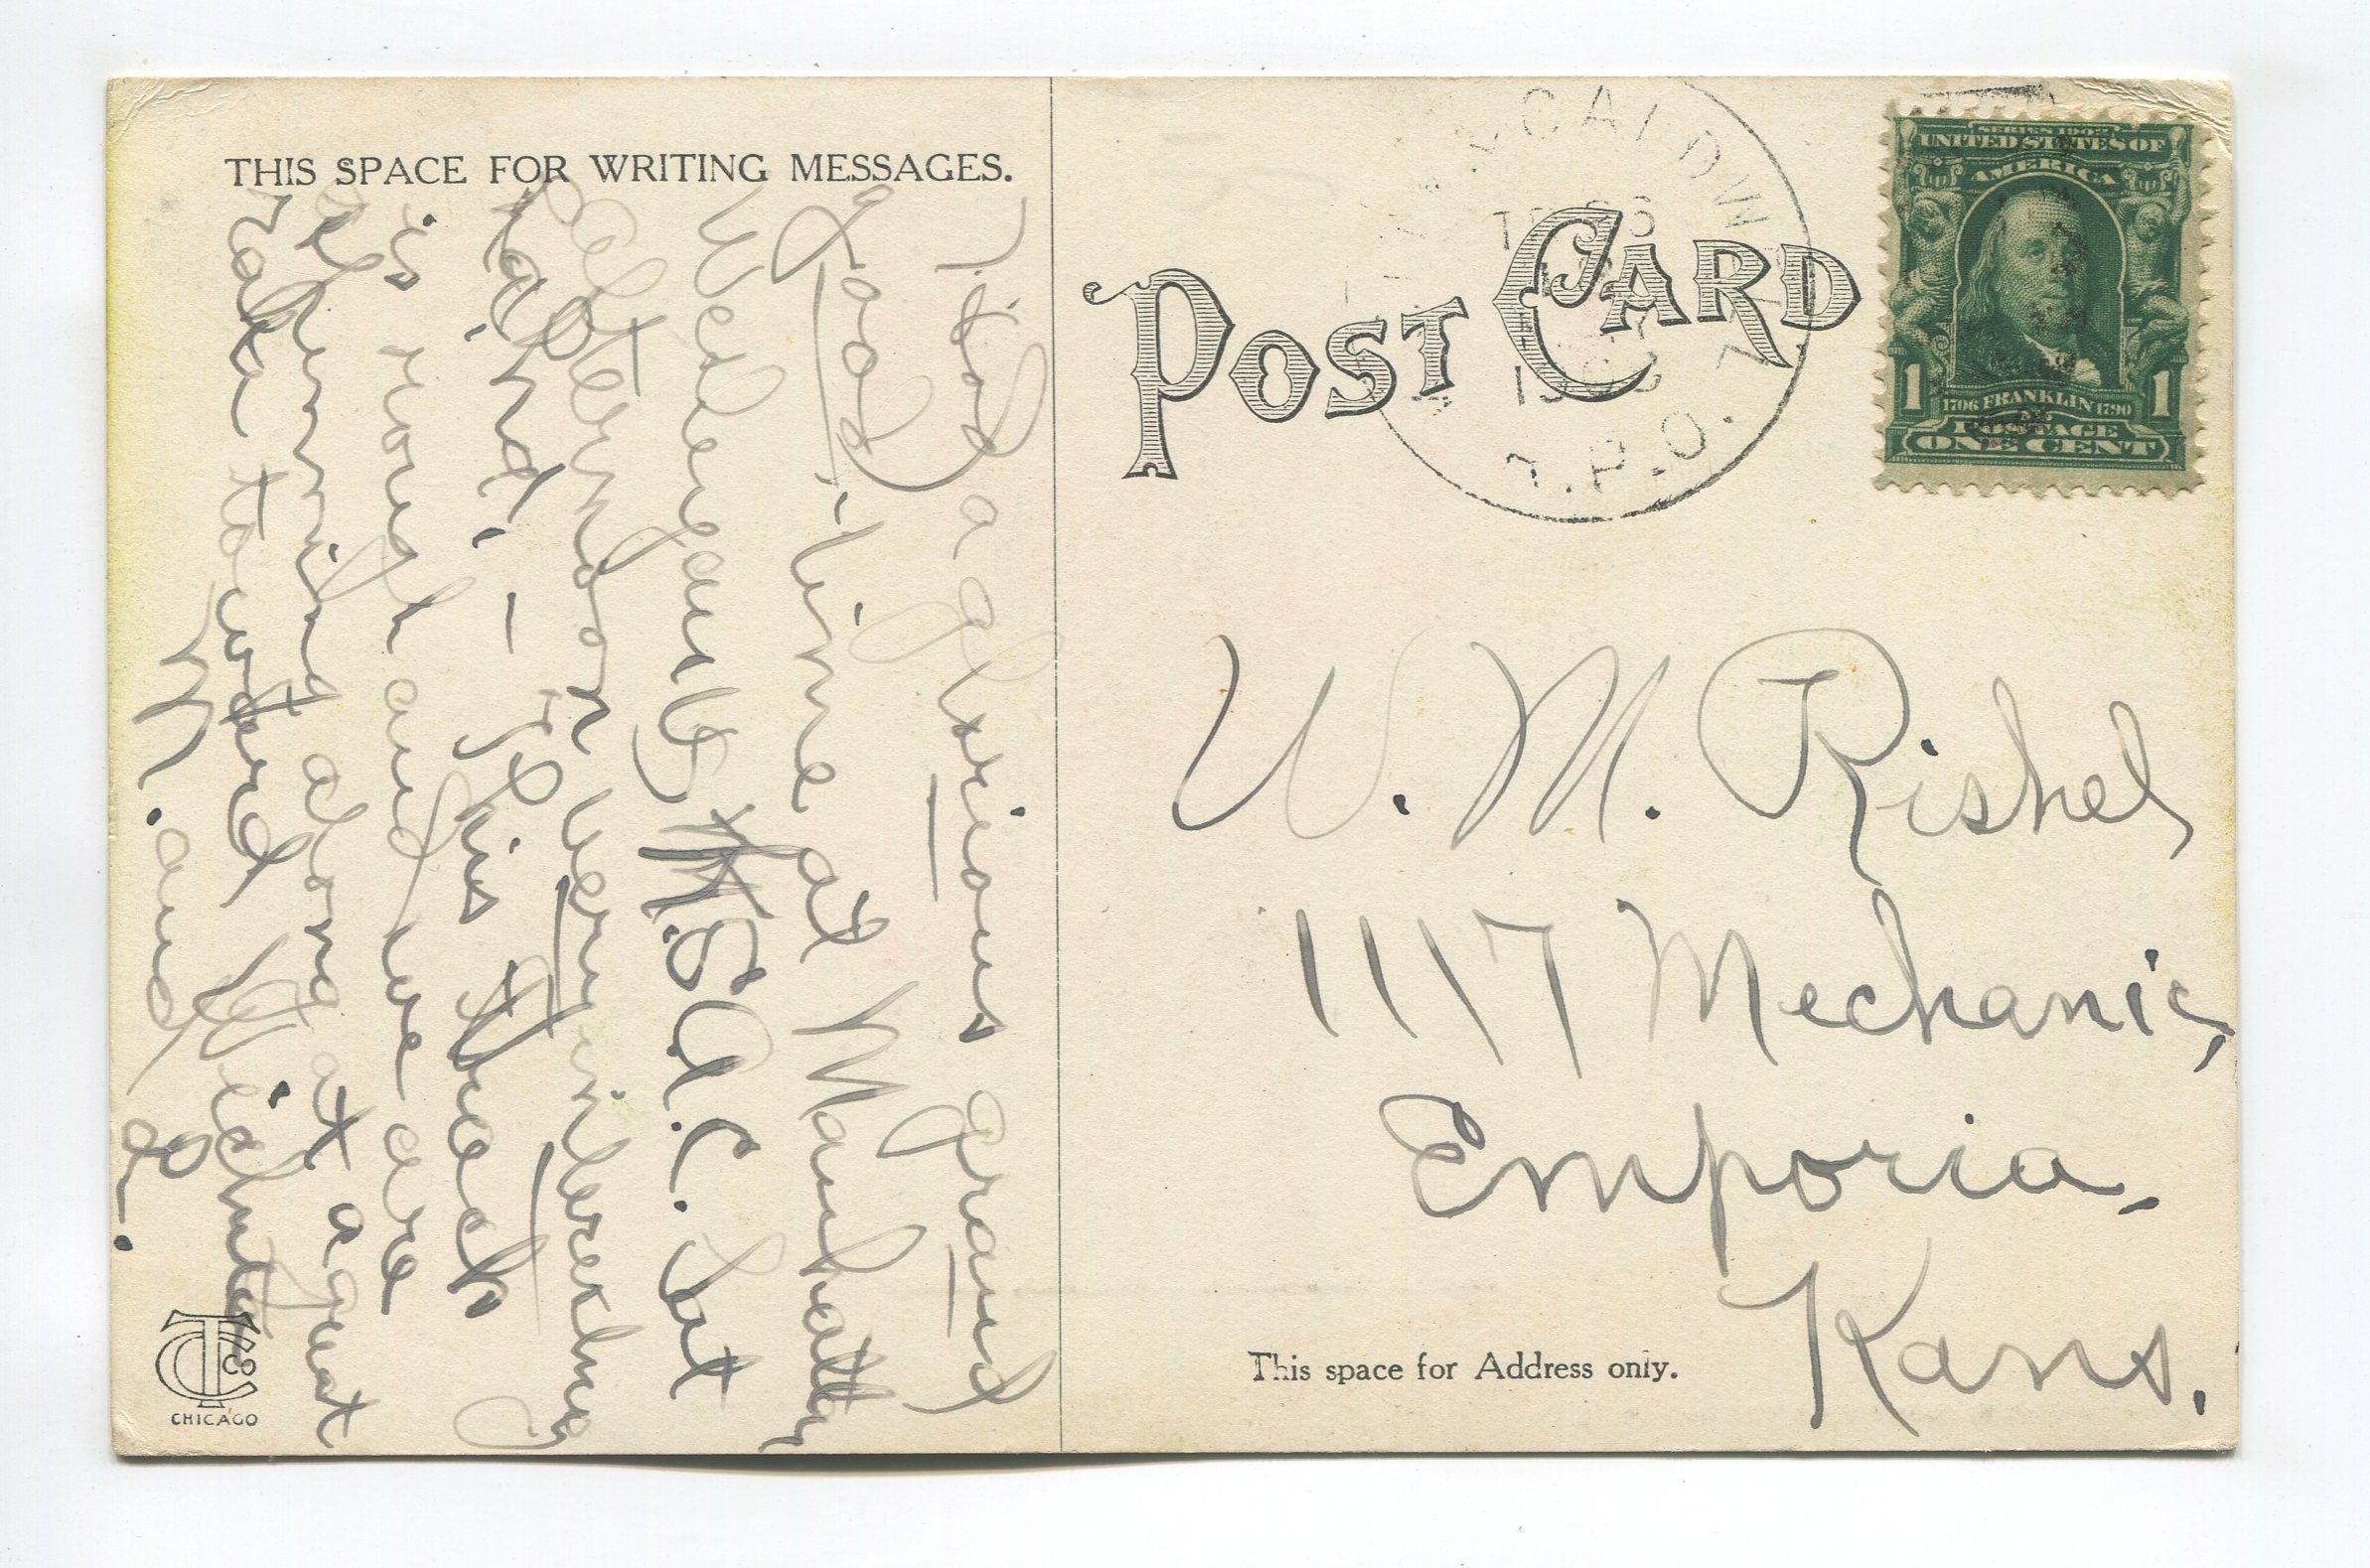 THIS SPACE FOR WRITING MESSAGES.
Had a glorious grand
good time at Manhattan
Wednesday. K.S.A.C. Sat
afternoon very interesting
Rapid. - This track
is rough and we are
skimming along at a great
rate toward Wichita
M. and G.
TC Co
CHICAGO
POST CARD
CALDWELL
T.P.O.
SERIES 1902
UNITED STATES OF
AMERICA
1 1706 FRANKLIN 1790 1
POSTAGE
ONE CENT
W. M. Rishel
1117 Mechanic,
Emporia,
Kans.
This space for Address only.